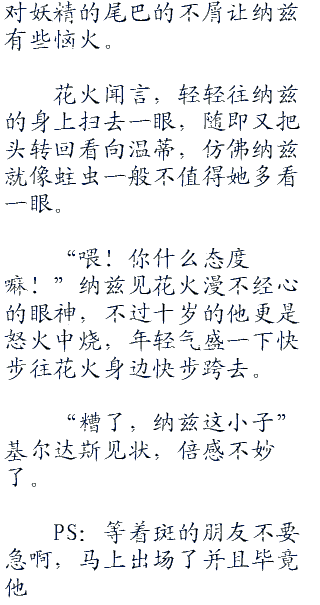 对妖精的尾巴的不屑让纳兹
有些恼火。
花火闻言，轻轻往纳兹
的身上扫去一眼，随即又把
头转回看向温蒂，仿佛纳兹
就像蛀虫一般不值得她多看
一眼。
“喂！你什么态度
嘛！”纳兹见花火漫不经心
的眼神，不过十岁的他更是
怒火中烧，年轻气盛一下快
步往花火身边快步跨去。
“糟了，纳兹这小子”
基尔达斯见状，倍感不妙
了。
PS：等着斑的朋友不要
急啊，马上出场了并且毕竟
他